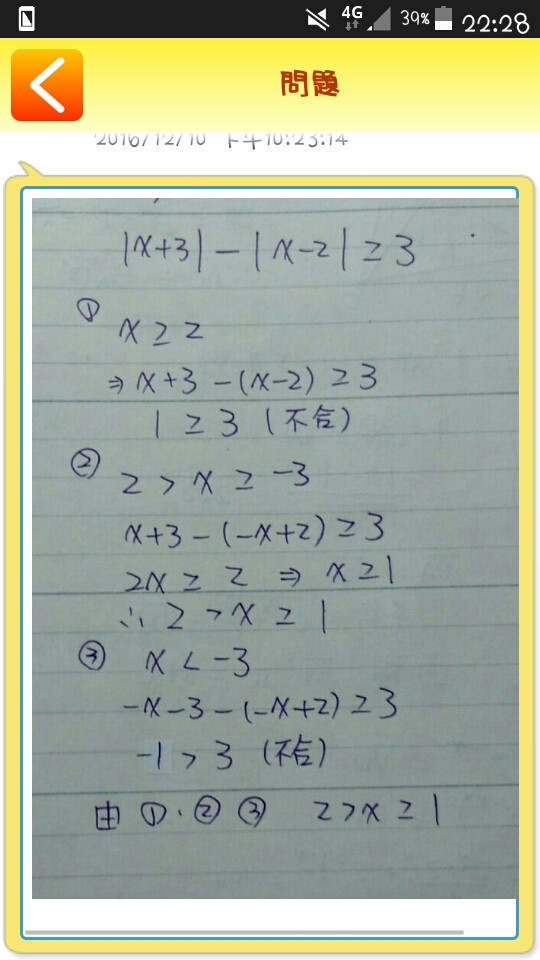 4G 39% 22:28
問題
2016/12/10 下午10:23:14
|x+3| - |x-2| ≥ 3
① x ≥ 2
⇒ x+3 - (x-2) ≥ 3
1 ≥ 3 (不合)
② 2 > x ≥ -3
x+3 - (-x+2) ≥ 3
2x ≥ 2 ⇒ x ≥ 1
∴ 2 > x ≥ 1
③ x < -3
-x-3 - (-x+2) ≥ 3
-1 > 3 (不合)
由 ①、② ③ 2 > x ≥ 1